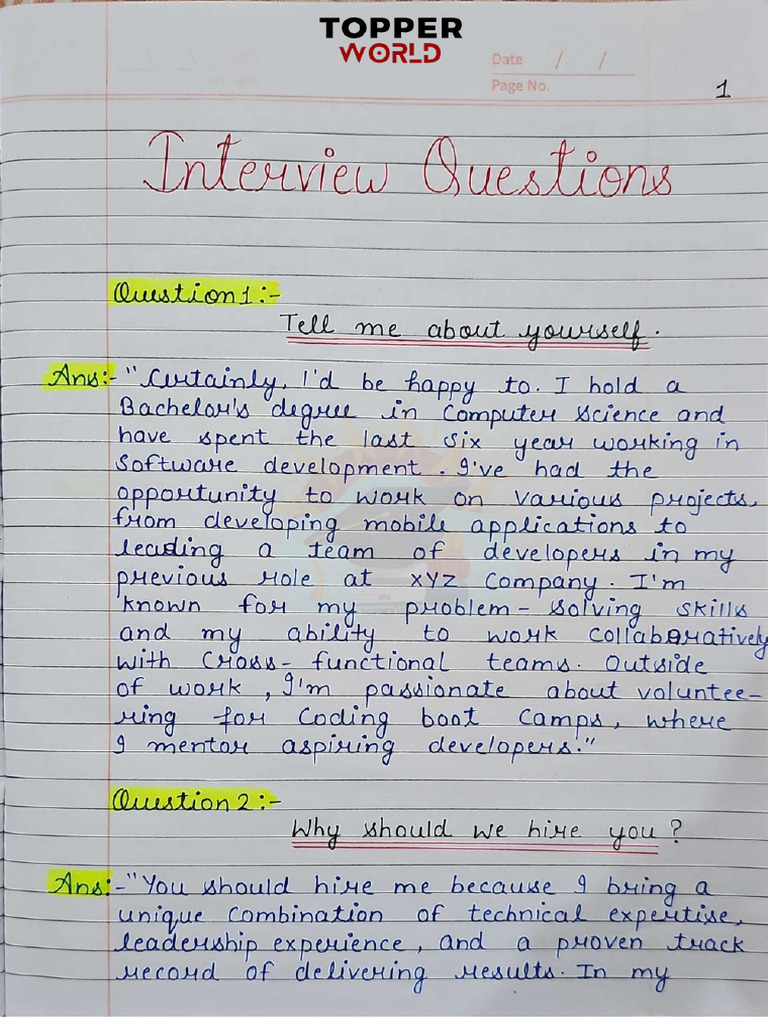 TOPPER
WORLD
Date / /
Page No.
1
Interview Questions
Question 1:-
Tell me about yourself.
Ans:- "Certainly, I'd be happy to. I hold a
Bachelor's degree in Computer Science and
have spent the last six year working in
software development. I've had the
opportunity to work on various projects,
from developing mobile applications to
leading a team of developers in my
previous role at XYZ Company. I'm
known for my problem-solving skills
and my ability to work collaboratively
with cross-functional teams. Outside
of work, I'm passionate about voluntee-
ring for coding boot camps, where
I mentor aspiring developers."
Question 2:-
Why should we hire you?
Ans:- "You should hire me because I bring a
unique combination of technical expertise,
leadership experience, and a proven track
record of delivering results. In my